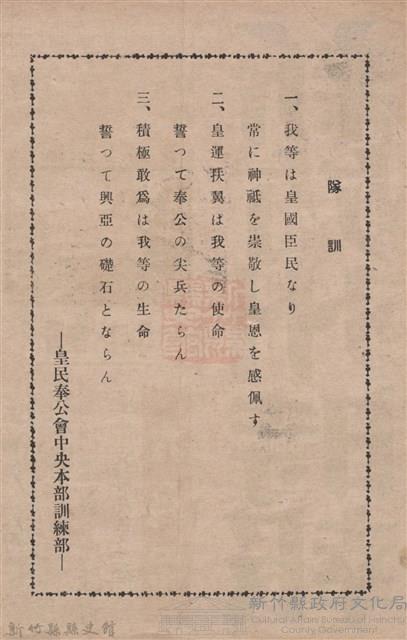 隊訓
一、我等は皇國臣民なり
常に神祗を崇敬し皇恩を感佩す
二、皇運扶翼は我等の使命
誓つて奉公の尖兵たらん
三、積極敢爲は我等の生命
誓つて興亞の礎石とならん
―皇民奉公會中央本部訓練部―
新竹縣縣史館
新竹縣政府文化局
Cultural Affairs Bureau of Hsinchu
County Government